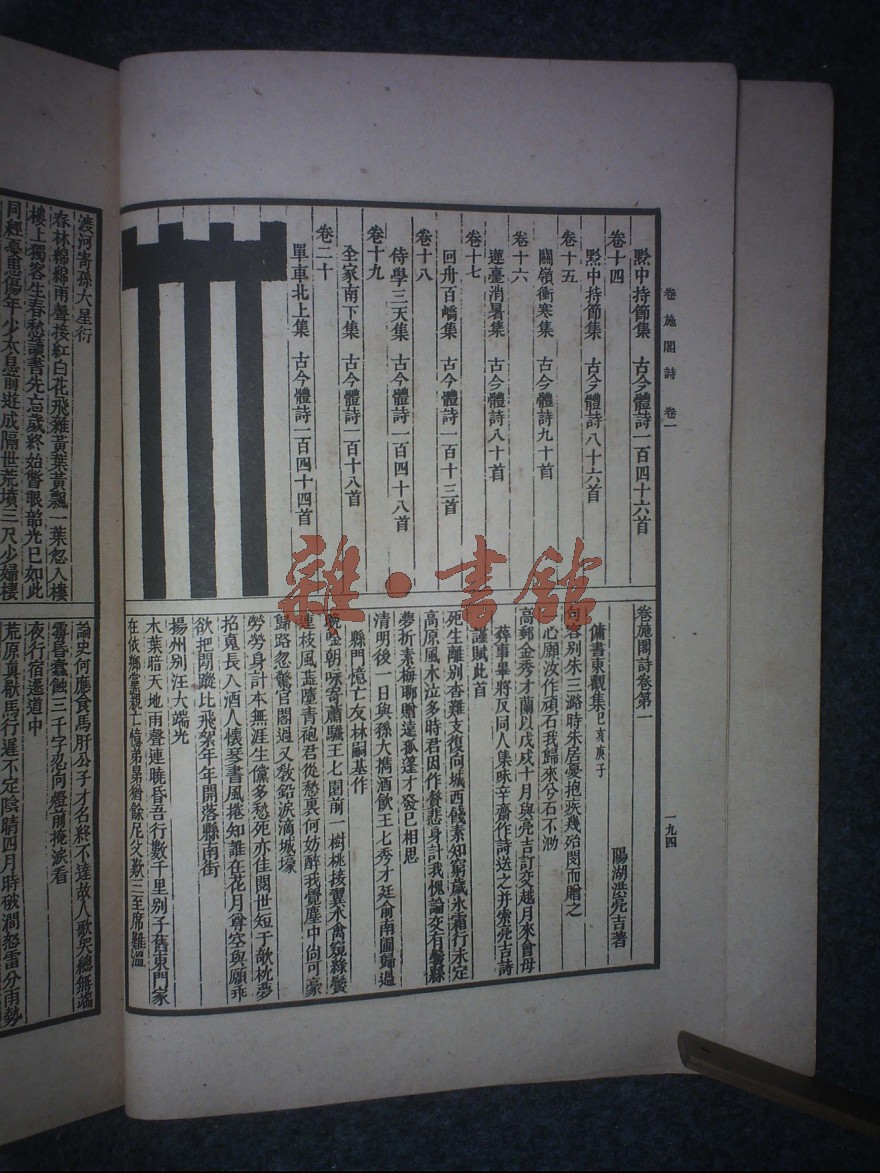 卷施閣詩 卷一
一九四
黔中持節集 古今體詩一百四十六首
卷十四
黔中持節集 古今體詩八十六首
卷十五
關嶺衝寒集 古今體詩九十首
卷十六
蓮臺消暑集 古今體詩八十首
卷十七
回舟百嶠集 古今體詩一百十三首
卷十八
侍學三天集 古今體詩一百四十八首
卷十九
全家南下集 古今體詩一百十八首
卷二十
單車北上集 古今體詩一百四十四首
卷施閣詩卷第一
陽湖洪亮吉著
傭書東觀集己亥庚子
句容別朱三潞時朱居憂抱疾幾殆閔而贈之
心願汝作頑石我歸來兮石不泐
高郵金秀才蘭以戊戌十月與亮吉訂交越月來會母
葬事畢將反同人集味辛齋作詩送之并索亮吉詩
謹賦此首
死生離別杳難支復向城西餞素知窮歲冰霜行未定
高原風木泣多時君因作贅悲身計我愧論交有鬢絲
夢折素梅聊贈遠孤篷才發已相思
清明後一日與孫大攜酒飲王七秀才廷俞南園歸過
縣門憶亡友林嗣基作
晚金朝咏寄蕭驥王七園前一樹桃接翼朮禽窺綠鬢
連枝風蓝墮青袍君從愁裏何妨醉我覺塵中尙可豪
歸路忽驚官閣過又教鉛淚滴城壕
勞勞身計本無涯生儻多愁死亦佳閱世短于欹枕夢
招䰟長入酒人懷琴書風捲知誰在花月尊空與願乖
欲把閒蹤比飛絮年年開落縣南街
揚州別汪大端光
木葉暗天地雨聲連曉昏吾行數千里別子舊東門家
在依鄉黨親亡憶弟昆猶餘足攵歎三至席難溫
渡河寄孫大星衍
春林綿綿雨聲接紅白花飛雜黃葉黃飄一葉忽入樓
樓上獨客生春愁讀書先忘歲終始瞥眼韶光已如此
同經憂患傷年少太息前遊成隔世荒墳三尺少婦棲
論史何應食馬肝公子才名終不達故人歌哭總無端
霧昏蠹蝕三千字忍向燈前掩淚看
夜行宿遷道中
荒原眞獸馬行遲不定陰晴四月時破澗怒雷分雨勢
雜·書館